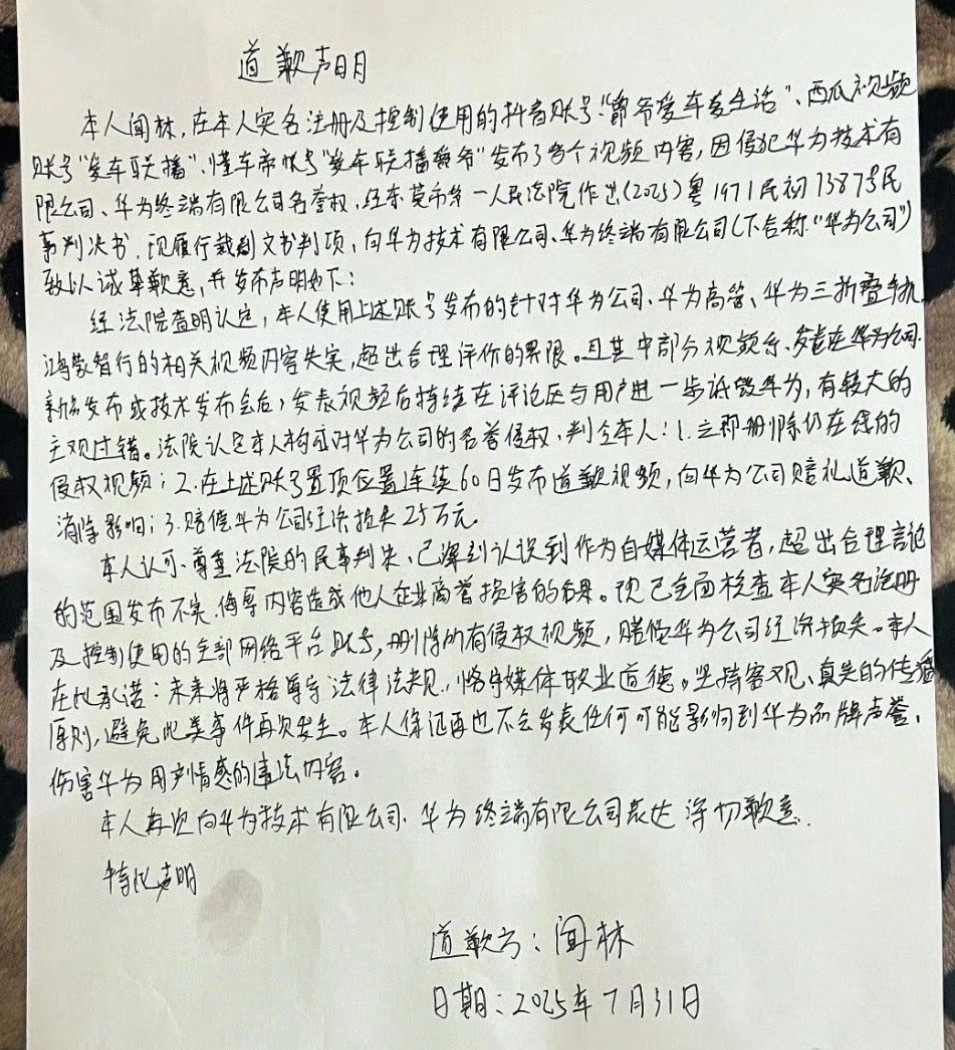 道歉声明
本人闻林,在本人实名注册及控制使用的抖音账号“爵爷爱车爱生活”、西瓜视频
账号“爱车联播”、懂车帝帐号“爱车联播爵爷”发布了多个视频内容,因侵犯华为技术有
限公司、华为终端有限公司名誉权,经东莞市第一人民法院作出(2025)粤1971民初7387号民
事判决书,现履行裁判文书判项,向华为技术有限公司、华为终端有限公司(下合称“华为公司”)
致以诚挚歉意,并发布声明如下:
经法院查明认定,本人使用上述账号发布的针对华为公司、华为高管、华为三折叠手机
鸿蒙智行的相关视频内容失实,超出合理评价的界限。且其中部分视频系发布在华为公司
新品发布或技术发布会后,发表视频后持续在评论区与用户进一步诋毁华为,有较大的
主观过错。法院认定本人构成对华为公司的名誉侵权,判令本人:1.立即删除仍存续的
侵权视频;2.在上述账号置顶位置连续60日发布道歉视频,向华为公司赔礼道歉、
消除影响;3.赔偿华为公司经济损失25万元。
本人认可、尊重法院的民事判决,已深刻认识到作为自媒体运营者,超出合理言论
的范围发布不实、侮辱内容造成他人企业商誉损害的后果。现已全面核查本人实名注册
及控制使用的全部网络平台账号,删除所有侵权视频,赔偿华为公司经济损失。本人
在此承诺:未来将严格遵守法律法规,恪守媒体职业道德。坚持客观、真实的传播
原则,避免此类事件再次发生。本人保证再也不会发表任何可能影响到华为品牌声誉,
伤害华为用户情感的违法内容。
本人再次向华为技术有限公司、华为终端有限公司表达深切歉意.
特此声明
道歉方:闻林
日期:2025年7月31日